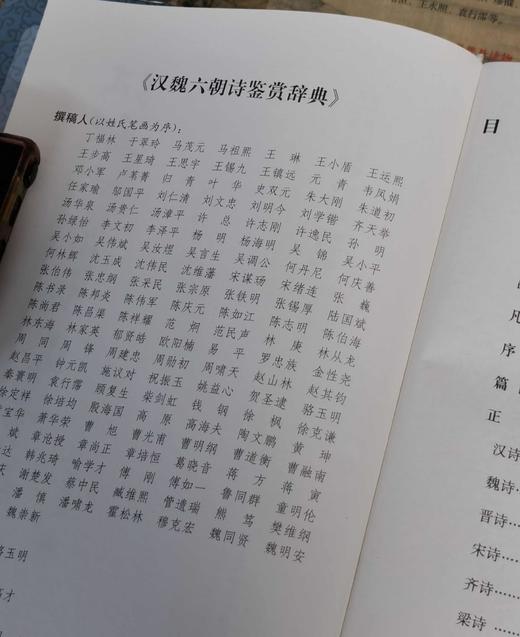 王水照、袁行霈等。
《汉魏六朝诗鉴赏辞典》
撰稿人(以姓氏笔画为序):
丁福林 于翠玲 马茂元 马祖熙 王 琳 王小盾 王运熙
王步高 王星琦 王思宇 王锡九 王镇远 元 青 韦凤娟
邓小军 卢苇菁 归 青 叶 华 史双元 朱大刚 朱道初
任家瑜 邬国平 刘仁清 刘文忠 刘明今 刘学锴 齐天举
汤华泉 汤贵仁 汤漳平 许 总 许志刚 许逸民 孙 明
孙绿怡 李文初 李泽平 杨 明 杨海明 吴 锦 吴小平
吴小如 吴伟斌 吴汝煜 吴言生 吴调公 何丹尼 何庆善
何林辉 沈玉成 沈伟民 沈维藩 宋谋玚 宋绪连 张 巍
张伯伟 张忠纲 张采民 张宗原 张铁明 张锡厚 陆国斌
陈书录 陈邦炎 陈伟军 陈庆元 陈如江 陈志明 陈伯海
陈尚君 陈昌渠 陈祥耀 范 炯 范民声 林 庚 林从龙
林东海 林家英 郁贤皓 欧阳楠 易 平 罗忠族 金性尧
周 同 周 锋 周建忠 周勋初 周啸天 赵山林 赵其钧
赵昌平 钟元凯 施议对 祝振玉 姚益心 贺圣逮 骆玉明
秦寰明 袁行霈 顾复生 柴剑虹 钱 钢 徐 枫 徐克谦
徐定祥 徐培均 殷海国 高 原 高海夫 陶文鹏 黄 坤
宝华 萧华荣 曹 旭 曹光甫 曹明纲 曹道衡 曹融南
斌 章沧授 章尚正 章培恒 葛晓音 蒋 方 蒋 寅
达 韩兆琦 喻学才 傅 刚 傅如一 鲁同群 童明伦
谢楚发 蔡中民 臧维熙 管遗瑞 熊 笃 樊维纲
潘 慎 潘啸龙 霍松林 穆克宏 魏同贤 魏明安
魏崇新
骆玉明
才
目
凡
序
篇
正
汉诗
魏诗
晋诗
宋诗
齐诗
梁诗